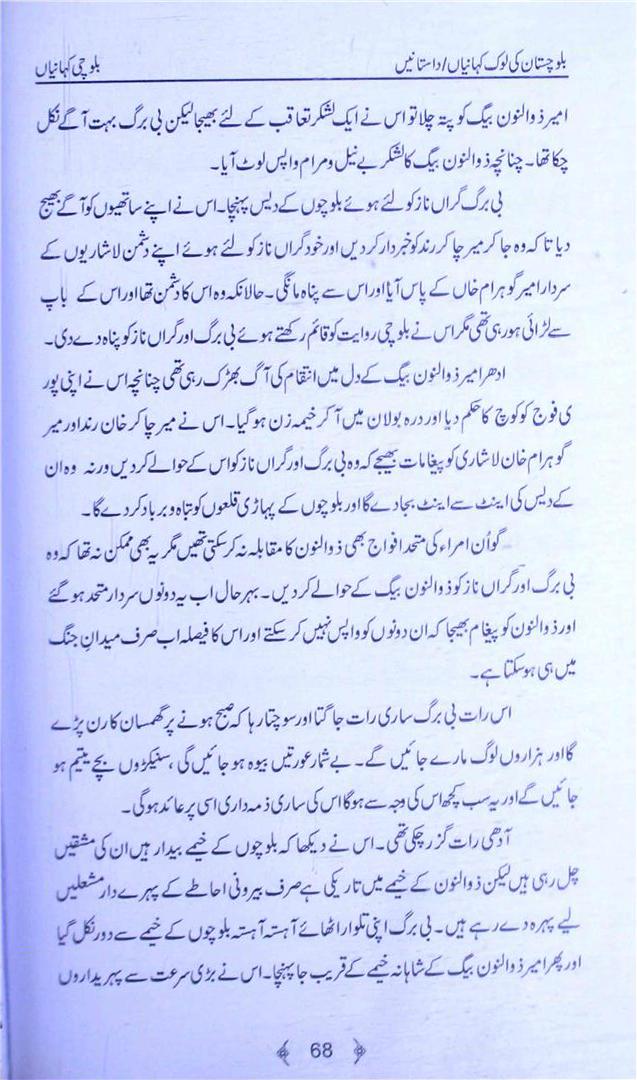 بلوچستان کی لوک کہانیاں/داستانیں
بلوچی کہانیاں
امیر ذوالنون بیگ کو پتہ چلا تو اس نے ایک لشکر تعاقب کے لئے بھیجا لیکن بی برگ بہت آگے نکل
چکا تھا۔ چنانچہ ذوالنون بیگ کا لشکر بے نیل و مرام واپس لوٹ آیا۔
بی برگ گراں ناز کو لئے ہوئے بلوچوں کے دیس پہنچا۔ اس نے اپنے ساتھیوں کو آگے بھیج
دیا تاکہ وہ جا کر میر چاکر رند کو خبردار کر دیں اور خود گراں ناز کو لئے ہوئے اپنے دشمن لاشاریوں کے
سردار امیر گوہرام خاں کے پاس آیا اور اس سے پناہ مانگی۔ حالانکہ وہ اس کا دشمن تھا اور اس کے باپ
سے لڑائی ہو رہی تھی مگر اس نے بلوچی روایت کو قائم رکھتے ہوئے بی برگ اور گراں ناز کو پناہ دے دی۔
ادھر امیر ذوالنون بیگ کے دل میں انتقام کی آگ بھڑک رہی تھی چنانچہ اس نے اپنی پور
ی فوج کو کوچ کا حکم دیا اور درہ بولان میں آ کر خیمہ زن ہو گیا۔ اس نے میر چاکر خان رند اور میر
گوہرام خان لاشاری کو پیغامات بھیجے کہ وہ بی برگ اور گراں ناز کو اس کے حوالے کر دیں ورنہ وہ ان
کے دیس کی اینٹ سے اینٹ بجا دے گا اور بلوچوں کے پہاڑی قلعوں کو تباہ و برباد کر دے گا۔
گو اُن امراء کی متحد افواج بھی ذوالنون کا مقابلہ نہ کر سکتی تھیں مگر یہ بھی ممکن نہ تھا کہ وہ
بی برگ اور گراں ناز کو ذوالنون بیگ کے حوالے کر دیں۔ بہرحال اب یہ دونوں سردار متحد ہو گئے
اور ذوالنون کو پیغام بھیجا کہ ان دونوں کو واپس نہیں کر سکتے اور اس کا فیصلہ اب صرف میدانِ جنگ
میں ہی ہو سکتا ہے۔
اس رات بی برگ ساری رات جاگتا اور سوچتا رہا کہ صبح ہونے پر گھمسان کا رن پڑے
گا اور ہزاروں لوگ مارے جائیں گے۔ بے شمار عورتیں بیوہ ہو جائیں گی، سنیکڑوں بچے یتیم ہو
جائیں گے اور یہ سب کچھ اس کی وجہ سے ہوگا اس کی ساری ذمہ داری اسی پر عائد ہوگی۔
آدھی رات گزر چکی تھی۔ اس نے دیکھا کہ بلوچوں کے خیمے بیدار ہیں ان کی مشقیں
چل رہی ہیں لیکن ذوالنون کے خیمے میں تاریکی ہے صرف بیرونی احاطے کے پہرے دار مشعلیں
لیے پہرہ دے رہے ہیں۔ بی برگ اپنی تلوار اٹھائے آہستہ آہستہ بلوچوں کے خیمے سے دور نکل گیا
اور پھر امیر ذوالنون بیگ کے شاہانہ خیمے کے قریب جا پہنچا۔ اس نے بڑی سرعت سے پہریداروں
68